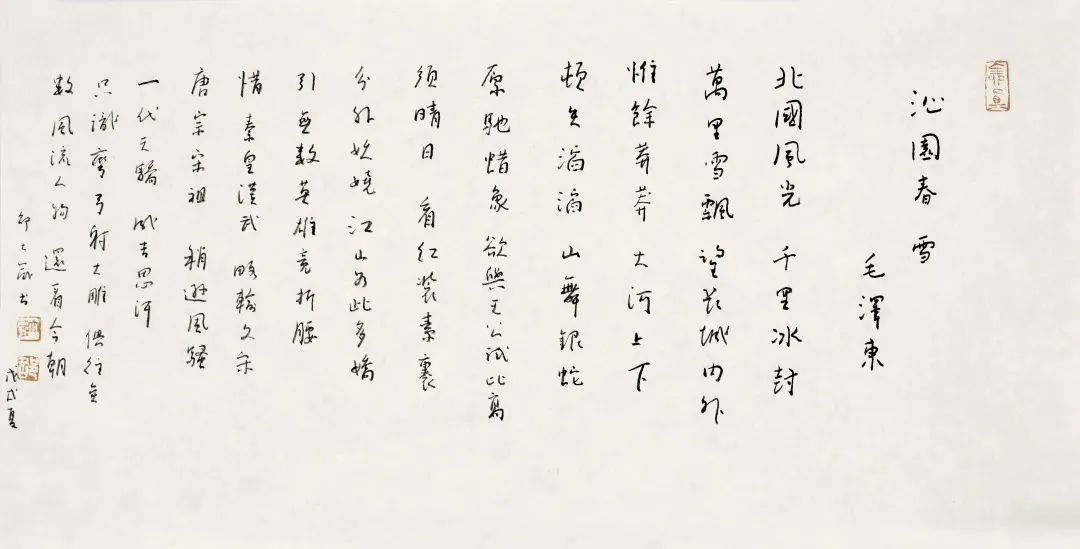 沁園春 雪
毛澤東
北國風光 千里冰封
萬里雪飄 望长城内外
惟餘莽莽 大河上下
顿失滔滔 山舞銀蛇
原馳蜡象 欲與天公試比高
须晴日 看红装素裹
分外妖嬈 江山如此多嬌
引無数英雄竞折腰
惜秦皇漢武 略輸文采
唐宗宋祖 稍遜風騷
一代天驕 成吉思汗
只識彎弓射大雕 俱往矣
数風流人物 還看今朝
戊戌夏